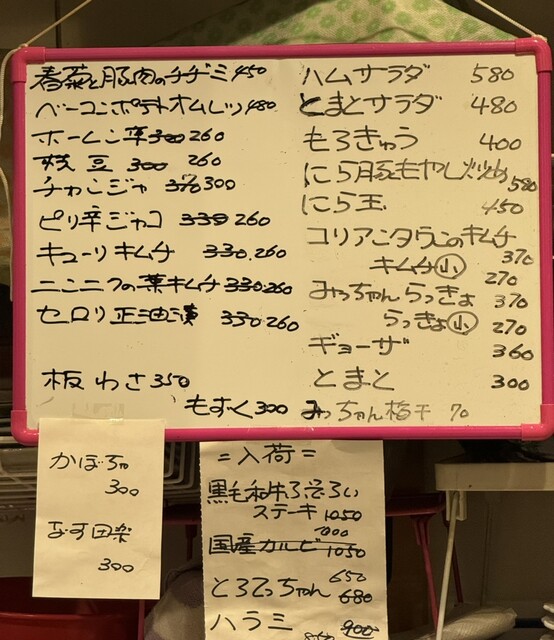 春菊と豚肉のチヂミ 450
ベーコンポテトオムレツ 480
ホーレン草 300 260
枝豆 300 260
チャンジャ 370 300
ピリ辛ジャコ 330 260
キューリキムチ 330 260
ニンニクの葉キムチ 330 260
セロリ正油漬 330 260
板わさ 350
もずく 300
ハムサラダ 580
とまとサラダ 480
もろきゅう 400
にら豚もやし炒め 580
にら玉 450
コリアンタウンのキムチ 370
キムチ小 270
みっちゃんらっきょ 370
らっきょ小 270
ギョーザ 360
とまと 300
みっちゃん梅干 70
かぼちゃ
300
なす田楽
300
=入荷=
黒毛和牛
ステーキ 1050
1000
国産カルビ 1050
650
とろてっちゃん 680
ハラミ 900